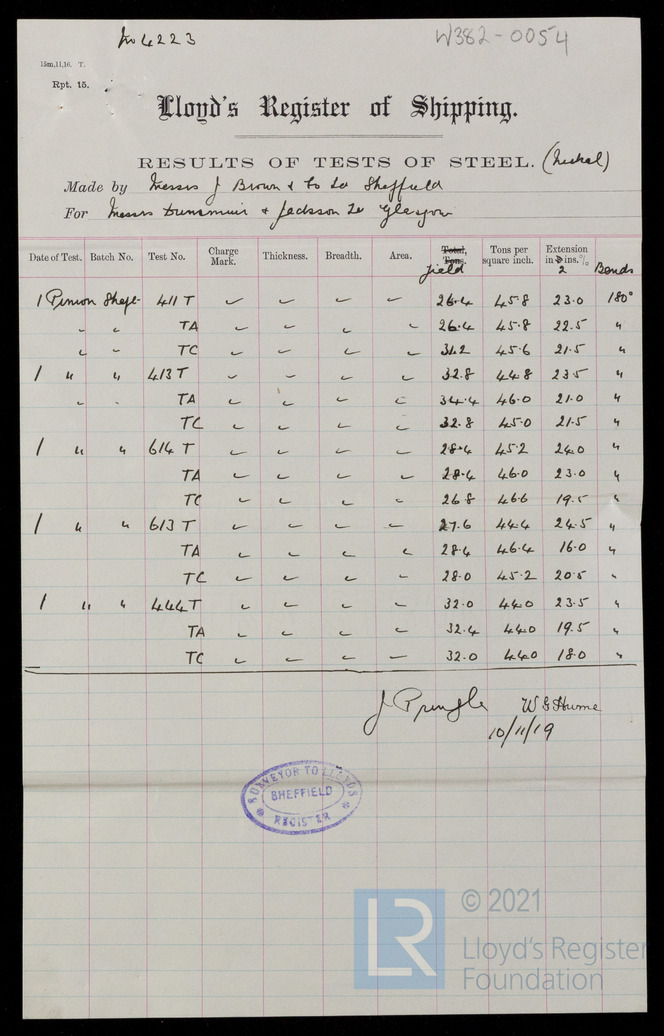 No 4223 W382-0054
15m,11,16. T.
Rpt. 15.
Lloyd's Register of Shipping.
RESULTS OF TESTS OF STEEL. (Nickel)
Made by Messrs J Brown & Co Ld Sheffield
For Messrs Dunsmuir & Jackson Ld Glasgow
Date of Test. Batch No. Test No. Charge Mark. Thickness. Breadth. Area. Total, Tons. Yield Tons per square inch. Extension in 8 ins.% 2 Bends
1 Pinion Shaft 411 T 26.4 45.8 23.0 180°
" " TA 26.4 45.8 22.5 "
" " TC 31.2 45.6 21.5 "
1 " " 413 T 32.8 44.8 23.5 "
" " TA 34.4 46.0 21.0 "
TC 32.8 45.0 21.5 "
1 " " 614 T 28.4 45.2 24.0 "
TA 28.4 46.0 23.0 "
TC 26.8 46.6 19.5 "
1 " " 613 T 27.6 44.4 24.5 "
TA 28.4 46.4 16.0 "
TC 28.0 45.2 20.5 "
1 " " 444 T 32.0 44.0 23.5 "
TA 32.4 44.0 19.5 "
TC 32.0 44.0 18.0 "
J Pringle W G Hume
10/11/19
SURVEYOR TO LLOYDS
SHEFFIELD
REGISTER
LR © 2021
Lloyd's Register
Foundation